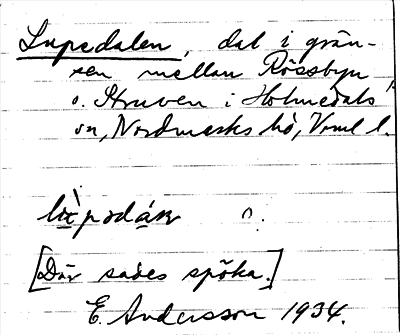 Lupedalen, dal i grän-
sen mellan Rössbyn
o. Struven i Holmedals
sn, Nordmarks hd, Vrml l.
[Där sades spöka.]
E. Andersson 1934.